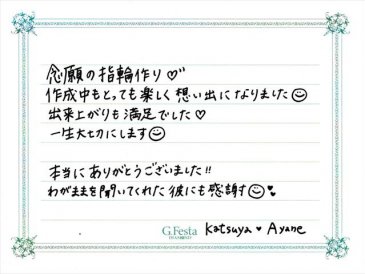 念願の指輪作り♡
作成中もとっても楽しく想い出になりました☺
出来上がりも満足でした♡
一生大切にします☺
本当にありがとうございました!!
わがままを聞いてくれた彼にも感謝す☺♥
G.Festa
Katsuya ♥ Ayane